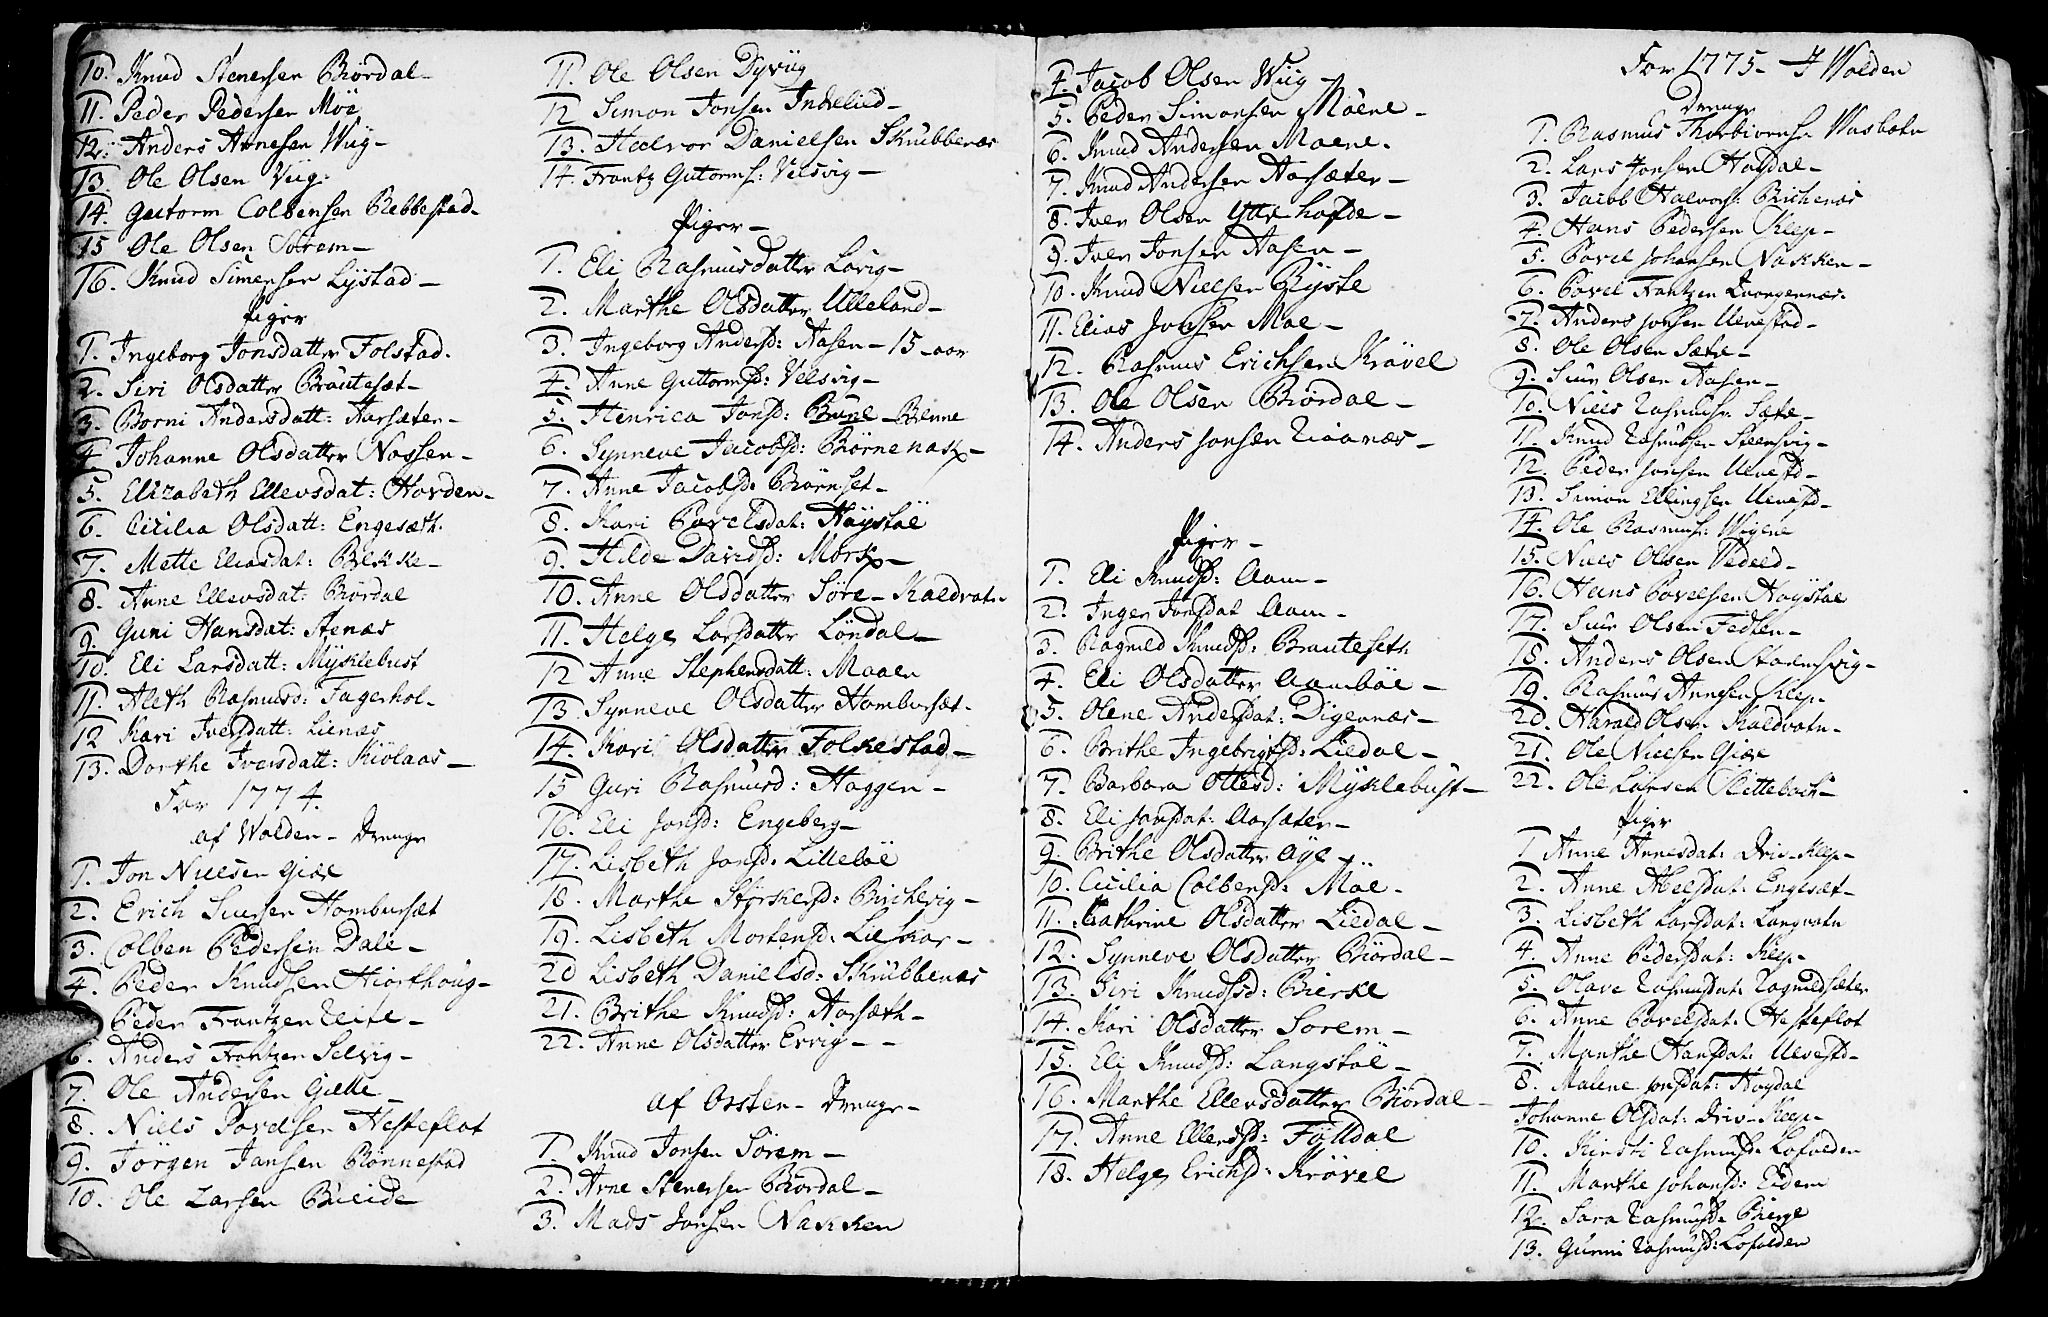 10. Knud Stenersen Bördal-
11. Peder Pedersen Möe
12. Anders Arnesen Wiig-
13. Ole Olsen Viig-
14. Guttorm Colbensen Rebbestad-
15 Ole Olsen Sörem-
16. Knud Simensen Lystad-
Piger
1. Ingeborg Jonsdatter Folstad.
2. Siri Olsdatter Brautesæt-
3. Borni Andersdatt: Aarsæter-
4 Johanne Olsdatter Nossen-
5. Elizabeth Ellevsdat: Hovden-
6. Cicilia Olsdatt: Engesæth.
7. Mette Eliasdat: Bekke-
8. Anne Ellevsdat: Bördal
9. Guni Hansdat: Stenæs
10. Eli Larsdatt: Myklebust
11. Aleth Rasmusd: Fagerhol-
12 Kari Iversdatt: Lienæs
13. Dorthe Iversdatt: Kiölaas-
For 1774.
af Wolden- Drenge
1. Jon Nielsen Giæe
2. Erich Siursen Hombersæt
3. Colben Pedersen Dale-
4. Peder Knudsen Hiorthoug-
Peder Frantzen Reite-
6. Anders Frantzen Selvig-
7. Ole Andersen Gielle-
8. Niels Povelsen Hesteflot
9. Jörgen Jansen Rönnestad
10. Ole Larsen Bueide
11. Ole Olsen Dyviig
12 Simon Jonsen Indselied-
13. Halvor Danielsen Skrubbenæs
14. Frantz Gutorms: Velsvig-
Piger-
1. Eli Rasmusdatter Lovig-
2. Marthe Olsdatter Ulleland-
3. Ingeborg Andersd: Aasen-15-aar
4. Anne Guttormsd: Velsvig-
5. Henrica Jonsd: Brune-Benne
6. Synneve Jacobsd: Börnenas-
7. Anne Jacobsd: Börnset-
8. Kari Povelsdat: Höystöl
9. Hilde Davidsd: Mork-
10. Anne Olsdatter Söre-Kaldvatn
11. Helge Larsdatter Löndal-
12 Anne Stephensdatt: Maaen
13. Synneve Olsdatter Hombersæt-
14. Kari Olsdatter Folkestad-
15 Guri Rasmusd: Haggen-
16. Eli Jonsd: Engeberg-
17. Lisbeth Jonsd: Lilleböe
18. Marthe Störkersd: Birchevig-
19. Lisbeth Mortensd: Lieskar-
20 Lisbeth Danielsd: Skrubbenæs
21. Brithe Knudsd: Aarsæth-
22. Anne Olsdatter Ervig--
af Orsten- Drenge-
1. Knud Jonsen Sörem-
2. Arne Stenersen Bördal-
3. Mads Jonsen Nakken
4. Jacob Olsen Wiig-
5. Peder Simonsen Möene-
6. Knud Andersen Moene.
7. Knud Andersen Aarsæter-
8. Iver Olsen Ytrehofde-
9. Iver Jonsen Aasen-
10. Knud Nielsen Ryste
11. Elias Jonsen Moe-
12. Rasmus Erichsen Krövel
13. Ole Olsen Bördal-
14. Anders Jonsen Raanæs-
Piger-
1. Eli Knudsd: Aam-
2. Inger Jonsdat Aam-
3. Ragnild Knudsd: Brauteseth
4. Eli Olsdatter Aamböe-
5. Olene Andersdat: Digernæs-
6. Brithe Ingebrigtsd: Liedal-
7. Barbara Ottesd: Myklebust-
8. Eli Jonsdat: Aarsæter-
9. Brithe Olsdatter Öye-
10. Cicilia Colbensd: Möe-
11. Cathrine Olsdatter Liedal-
12. Synneve Olsdatter Bördal-
13. Siri Knudsd: Bierke
14. Kari Olsdatter Sorem-
15. Eli Knudsd: Langstöl-
16. Marthe Ellevsdatter Bördal-
17. Anne Ellevsd: Fölldal
18. Helge Erichsd: Krövel
For 1775- I Wolden
Drenge
1. Rasmus Thorbiornsen Wasbotn
2. Lars Jonsen Hogdal-
3. Jacob Halvors: Bichenæs
4. Hans Pedersen Klep-
5. Povel Johansen Nakken-
6. Povel Frantzen Kvangernæs.
7. Anders Jonsen Ulvestad-
8. Ole Olsen Sæte-
9. Siur Olsen Aasen-
10. Niels Rasmusen Sæte-
11. Knud Rasmussen Steensvig-
12. Peder Jonsen Ulvestd-
13. Simon Ellingsen Ulvestd-
14. Ole Rasmus: Wigene
15. Niels Olsen Vedeld-
16. Hans Povelsen Höystöl
17. Siur Olsen Fedten-
18. Anders Olsen Steensvig-
19. Rasmus Annesen Klep-
20. Harald Olsen Kaldvatn-
21. Ole Nielsen Giæe
22. Ole Larsen Slettebach-
Piger
1 Anne Arnesdat: Driv-Klep-
2. Anne Abelsdat: Engesæt-
3. Lisbeth Larsdat: Langvatn
4. Anne Pedersdat: Klep-
5. Olave Rasmusdat: Ragnildsæter
6. Anne Povelsdat: Hesteflot
7. Marthe Hansdat: Ulvestd-
8. Malene Jonsdat: Hogdal
Johanne Olsdat: Driv-Klep-
10. Kirsti Rasmusd: Lofolden
11. Marthe Johansd: Eidem
12. Sara Rasmusd: Bierge
13. Gunni Rasmusd: Lofolden